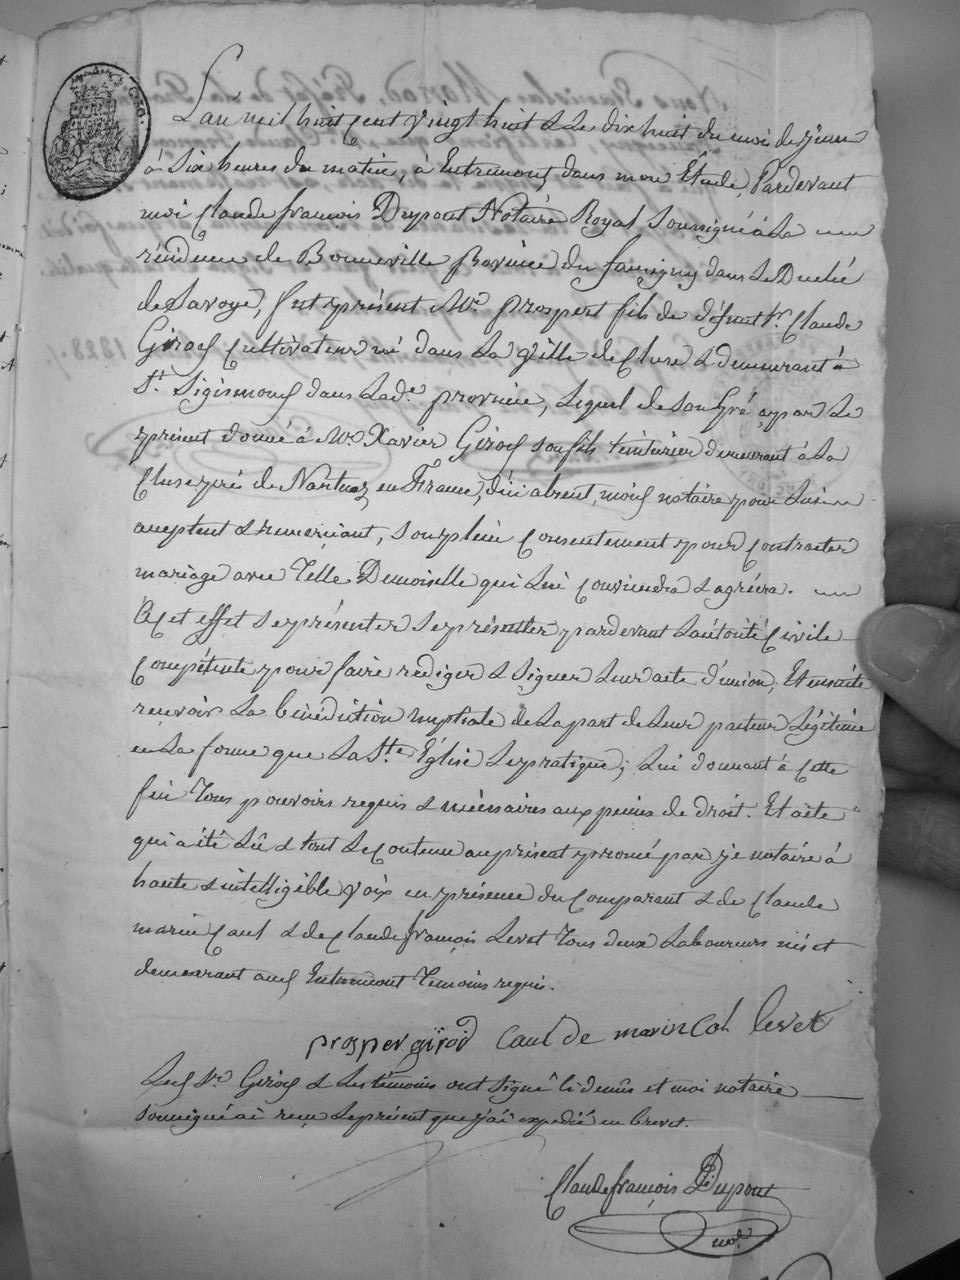 L'an mil huit cent vingt huit & le dix huit du moi de juin
à six heures du matin, à Entremont, dans mon Etude, Pardevant
moi Claude françois Dupont Notaire Royal soussigné à la
résidence de Bonneville Province du faucigny dans Le Duché
de Savoye, fut présent Mr. prospert fils de défunt Sr. Claude
Girod Cultivateur né dans La Ville de Cluse & demeurant à
St. Sigismond dans Lade. province, Lequel de son Gré a par Le
présent donné à Mr. Xavier Girod son fils teinturier demeurant à La
Cluse près de Nantua en France, d'ici absent, moid. notaire pour Lui
acceptent & remerciant, son plein Consentement pour Contracter
mariage avec Telle Demoiselle qui Lui Conviendra & agréera.
A Cet effet se présenter se présenter pardevant L'autorité Civile
Compétente pour faire rediger & signer Leur acte d'union, Et ensuite
recevoir La bénédiction nuptiale de La part de Leur pasteur Légitime
en La forme que La Ste. Église Le pratique; Lui donnant à Cette
fin Tous pouvoirs requis & nécessaires aux peines de droit. Et acte
qui a été Lû & tout Le Contenu au présent prononcé par je notaire à
haute & intelligible Voix en présence du Comparant & de Claude
marin Caul & de Claude françois Levet Tous deux Laboureurs nés et
demeurant aud. Entremont Temoins requis.
prosper girod Caul de marin Col levet
Led. Sr. Girod & Les témoins ont signé ci dessus et moi notaire
soussigné ai reçu Le présent que j'ai expedié en brevet.
Claude françois Dupont
not.